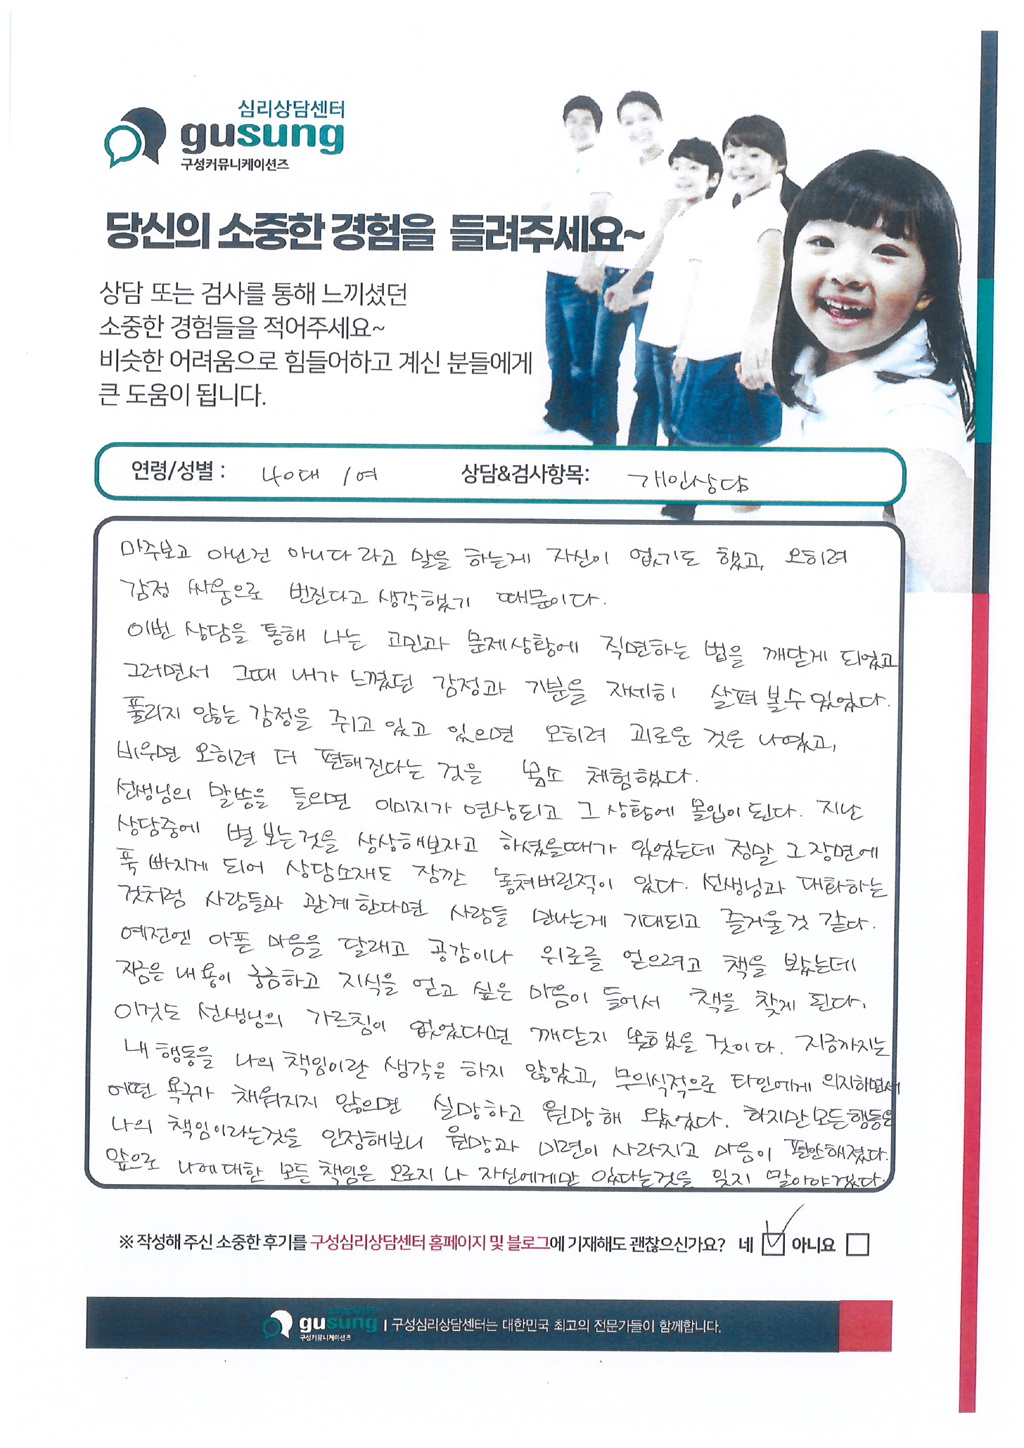 심리상담센터
gusung
구성커뮤니케이션즈
당신의 소중한 경험을 들려주세요~
상담 또는 검사를 통해 느끼셨던
소중한 경험들을 적어주세요~
비슷한 어려움으로 힘들어하고 계신 분들에게
큰 도움이 됩니다.
연령/성별 : 40대 / 여 상담&검사항목: 개인상담
마주보고 아닌건 아니다 라고 말을 하는게 자신이 없기도 했고, 오히려
감정 싸움으로 번진다고 생각했기 때문이다.
이번 상담을 통해 나는 고민과 문제상황에 직면하는 법을 깨닫게 되었고
그러면서 그때 내가 느꼈던 감정과 기분을 자세히 살펴 볼수 있었다.
풀리지 않는 감정을 쥐고 있고 있으면 오히려 괴로운 것은 나였고,
비우면 오히려 더 편해진다는 것을 몸소 체험했다.
선생님의 말씀을 들으면 이미지가 연상되고 그 상황에 몰입이 된다. 지난
상담중에 별 보는것을 상상해보자고 하셨을때가 있었는데 정말 그 장면에
푹 빠지게 되어 상담소재도 잠깐 놓쳐버린적이 있다. 선생님과 대화하는
것처럼 사람들과 관계한다면 사람들 만나는게 기대되고 즐거울것 같다.
예전엔 아픈 마음을 달래고 공감이나 위로를 얻으려고 책을 봤는데
지금은 내용이 궁금하고 지식을 얻고 싶은 마음이 들어서 책을 찾게 된다.
이것도 선생님의 가르침이 없었다면 깨닫지 못했을 것이다. 지금까지는
내 행동을 나의 책임이란 생각은 하지 않았고, 무의식적으로 타인에게 의지하면서
어떤 욕구가 채워지지 않으면 실망하고 원망해 왔었다. 하지만 모든 행동은
나의 책임이라는것을 인정해보니 원망과 미련이 사라지고 마음이 편안해졌다.
앞으로 나에 대한 모든 책임은 오로지 나 자신에게만 있다는것을 잊지 말아야겠다.
※ 작성해 주신 소중한 후기를 구성심리상담센터 홈페이지 및 블로그에 기재해도 괜찮으신가요? 네 ☑ 아니요 ☐
심리상담센터
gusung
구성커뮤니케이션즈
| 구성심리상담센터는 대한민국 최고의 전문가들이 함께합니다.